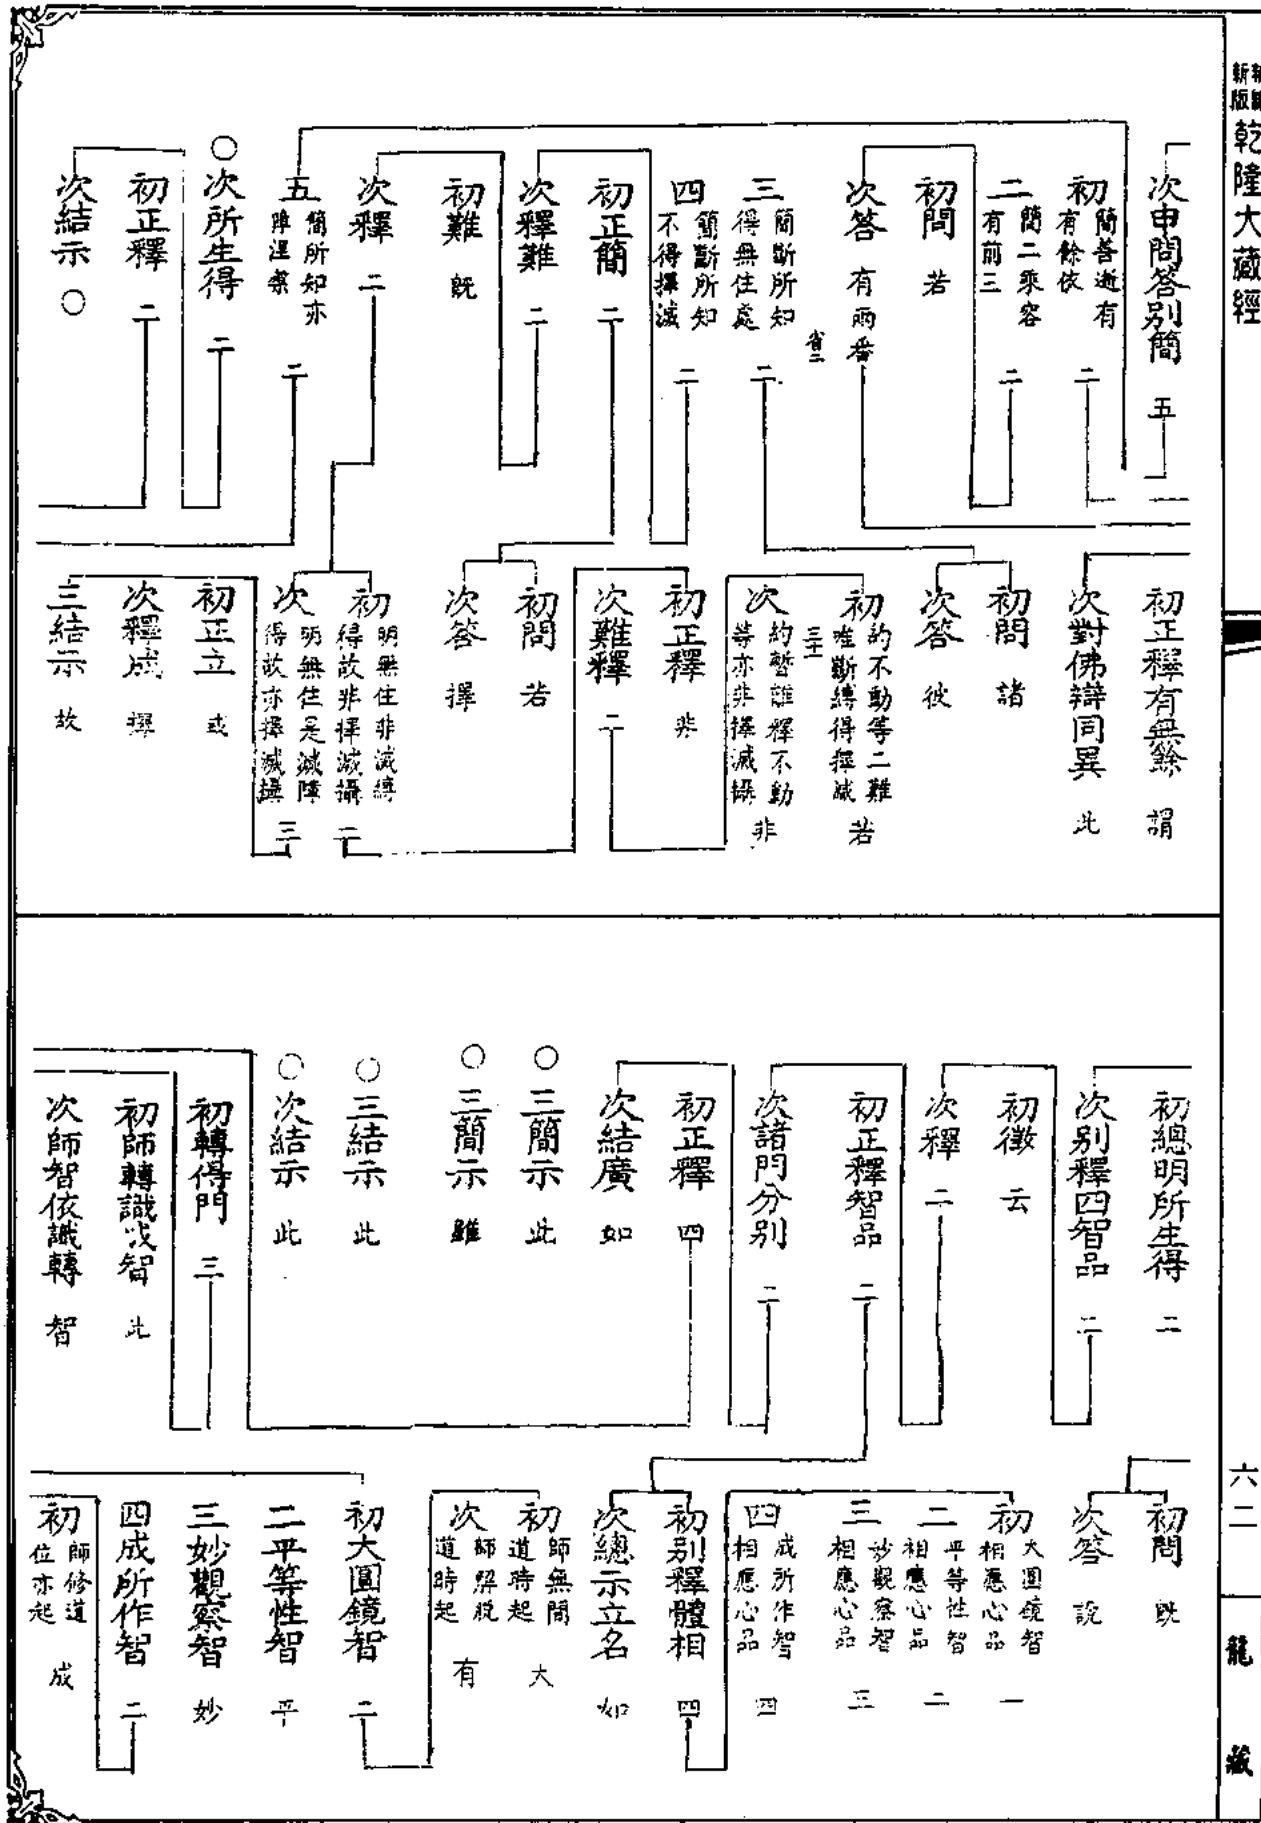 新編
新版
乾隆大藏經
六二
龍藏
次申問答別簡 五
初 簡善逝有有餘依 二
二 簡二乘容有前三 二
初問 若
次答 有兩番
三 簡斷所知得無住處 二
四 簡斷所知不得擇滅 二
初正簡 二
次釋難 二
初難 既
次釋 二
五 簡所知亦障涅槃 二
○次所生得 二
初正釋 二
次結示 ○
初正釋有無餘 謂
次對佛辯同異 此
初問 諸
次答 彼
初 約不動等二難唯斷縛得擇滅 若
次 約暫離釋不動等亦非擇滅攝 非
初正釋 非
次難釋 二
初問 若
次答 擇
初 明無住非滅縛得故非擇滅攝 二
次 明無住是滅障得故亦擇滅攝 三
初正立 或
次釋成 擇
三結示 故
初總明所生得 二
次別釋四智品 二
初徵 云
次釋 二
初正釋智品 二
次諸門分別 二
初正釋 四
次結廣 如
○三簡示 此
○三簡示 雖
○三結示 此
○次結示 此
初轉得門 三
初師轉識成智 此
次師智依識轉 智
初問 既
次答 說
初 大圓鏡智相應心品 一
二 平等性智相應心品 二
三 妙觀察智相應心品 三
四 成所作智相應心品 四
初別釋體相 四
次總示立名 如
初 師無間道時起 大
次 師解脫道時起 有
初大圓鏡智 二
二平等性智 平
三妙觀察智 妙
四成所作智 二
初 師修道位亦起 成